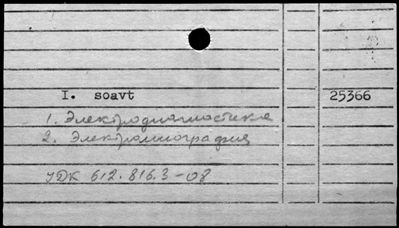 I. soavt 25366
1. Электродиагностика
2. Электромиография
УДК 612.816.3-08